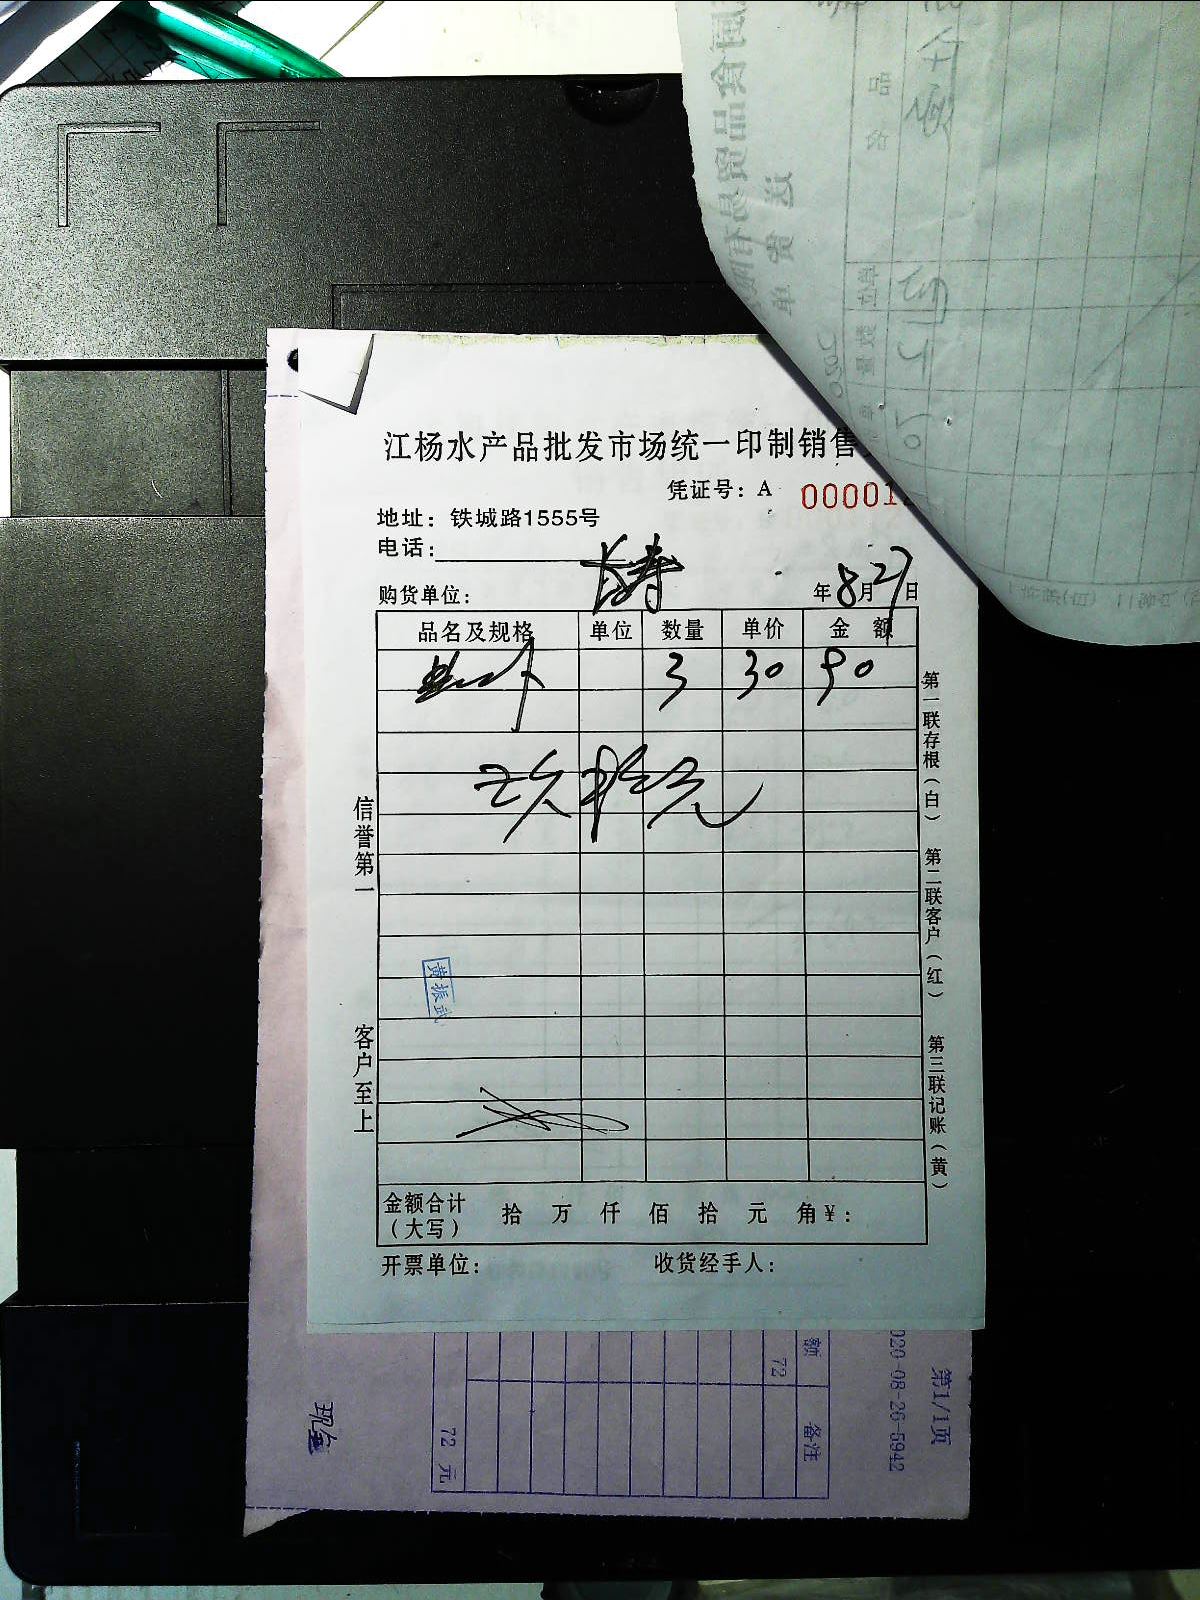 江杨水产品批发市场统一印制销售
凭证号：A 00001
地址：铁城路1555号
电话：
购货单位： 长寿 年8月27日
品名及规格 单位 数量 单价 金 额
3 30 90
玖拾元
信誉第一
客户至上
黄振武
第一联存根（白） 第二联客户（红） 第三联记账（黄）
金额合计（大写） 拾 万 仟 佰 拾 元 角 ¥：
开票单位： 收货经手人：
第1/1页
020-08-26-5942
额 备注
72
72 元
现金